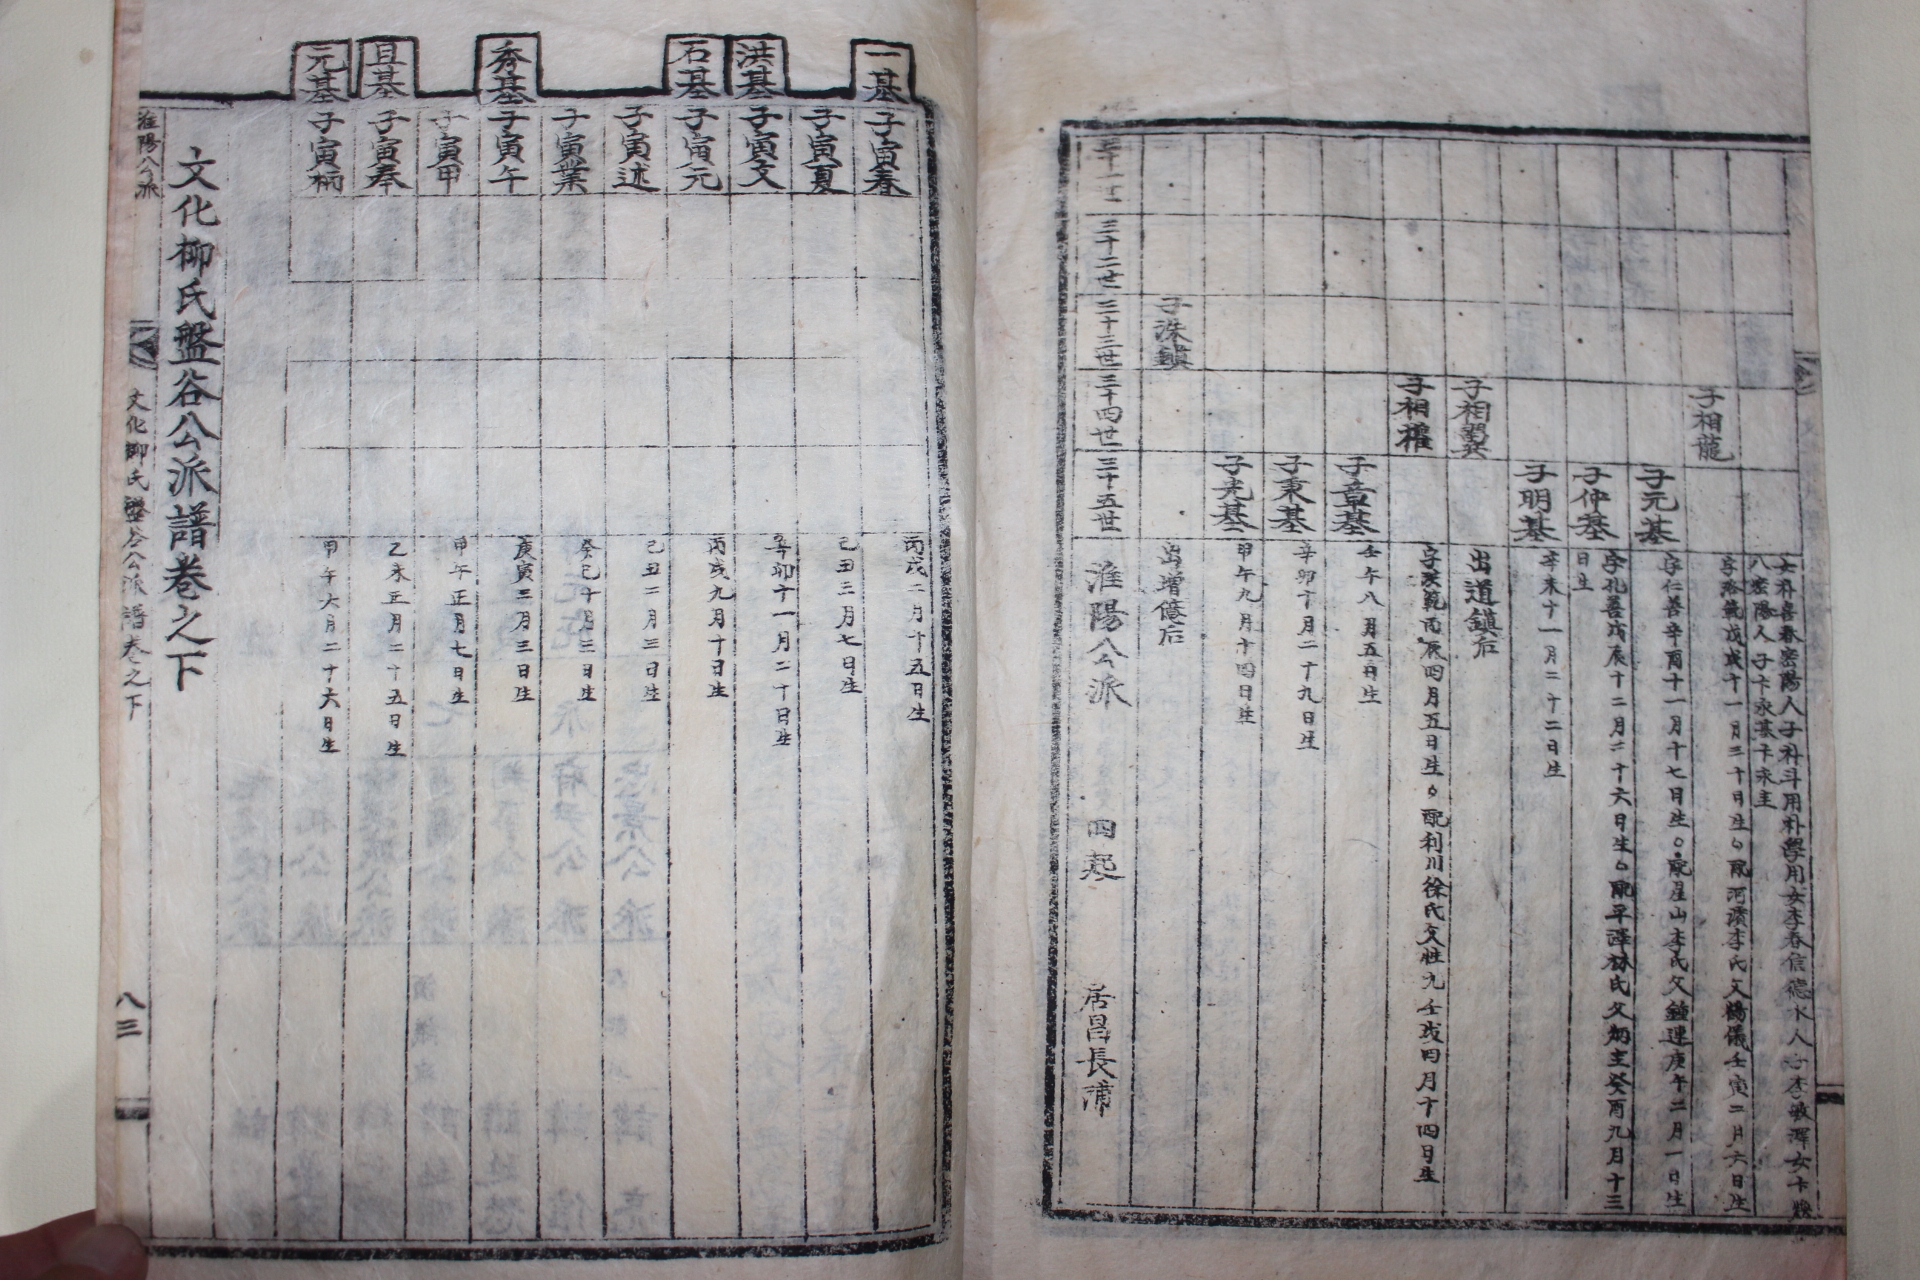 八密陽人子卞永基卞永主
子相龍
字洛範戊戌十一月三十日生○配河濱李氏父錫儀壬寅二月六日生
子元基
字仁善辛酉十一月十七日生○配星山李氏父鍾連庚午二月一日生
子仲基
字孔善戊辰十二月二十六日生○配平澤林氏父炳主癸酉九月十三
日生
子明基
辛未十一月二十二日生
子相巽
出道鎮后
子相權
字汝範丙辰四月五日生○配利川徐氏父性九壬戌四月十四日生
子章基
壬午八月五日生
子秉基
辛卯十月二十九日生
子光基
甲午九月十四日生
子洙鎮
出增億后
三十一世
三十二世
三十三世
三十四世
三十五世
淮陽公派
四起
居昌長蒲
一基
子寅春
丙戌一月十五日生
子寅夏
己丑三月七日生
洪基
子寅文
辛卯十一月二十日生
石基
子寅元
丙戌九月十日生
子寅述
己丑二月三日生
子寅業
癸巳十月三日生
秀基
子寅午
庚寅三月三日生
子寅甲
甲午正月七日生
且基
子寅奉
乙未正月二十五日生
元基
子寅柄
甲午六月二十六日生
文化柳氏盤谷公派譜卷之下
淮陽公派
文化柳氏盤谷公派譜卷之下
八三